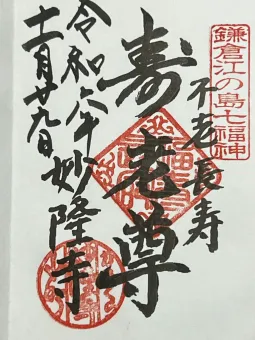 鎌倉江の島七福神
不老長寿
寿老尊
令和六年
十一月廿九日
妙隆寺